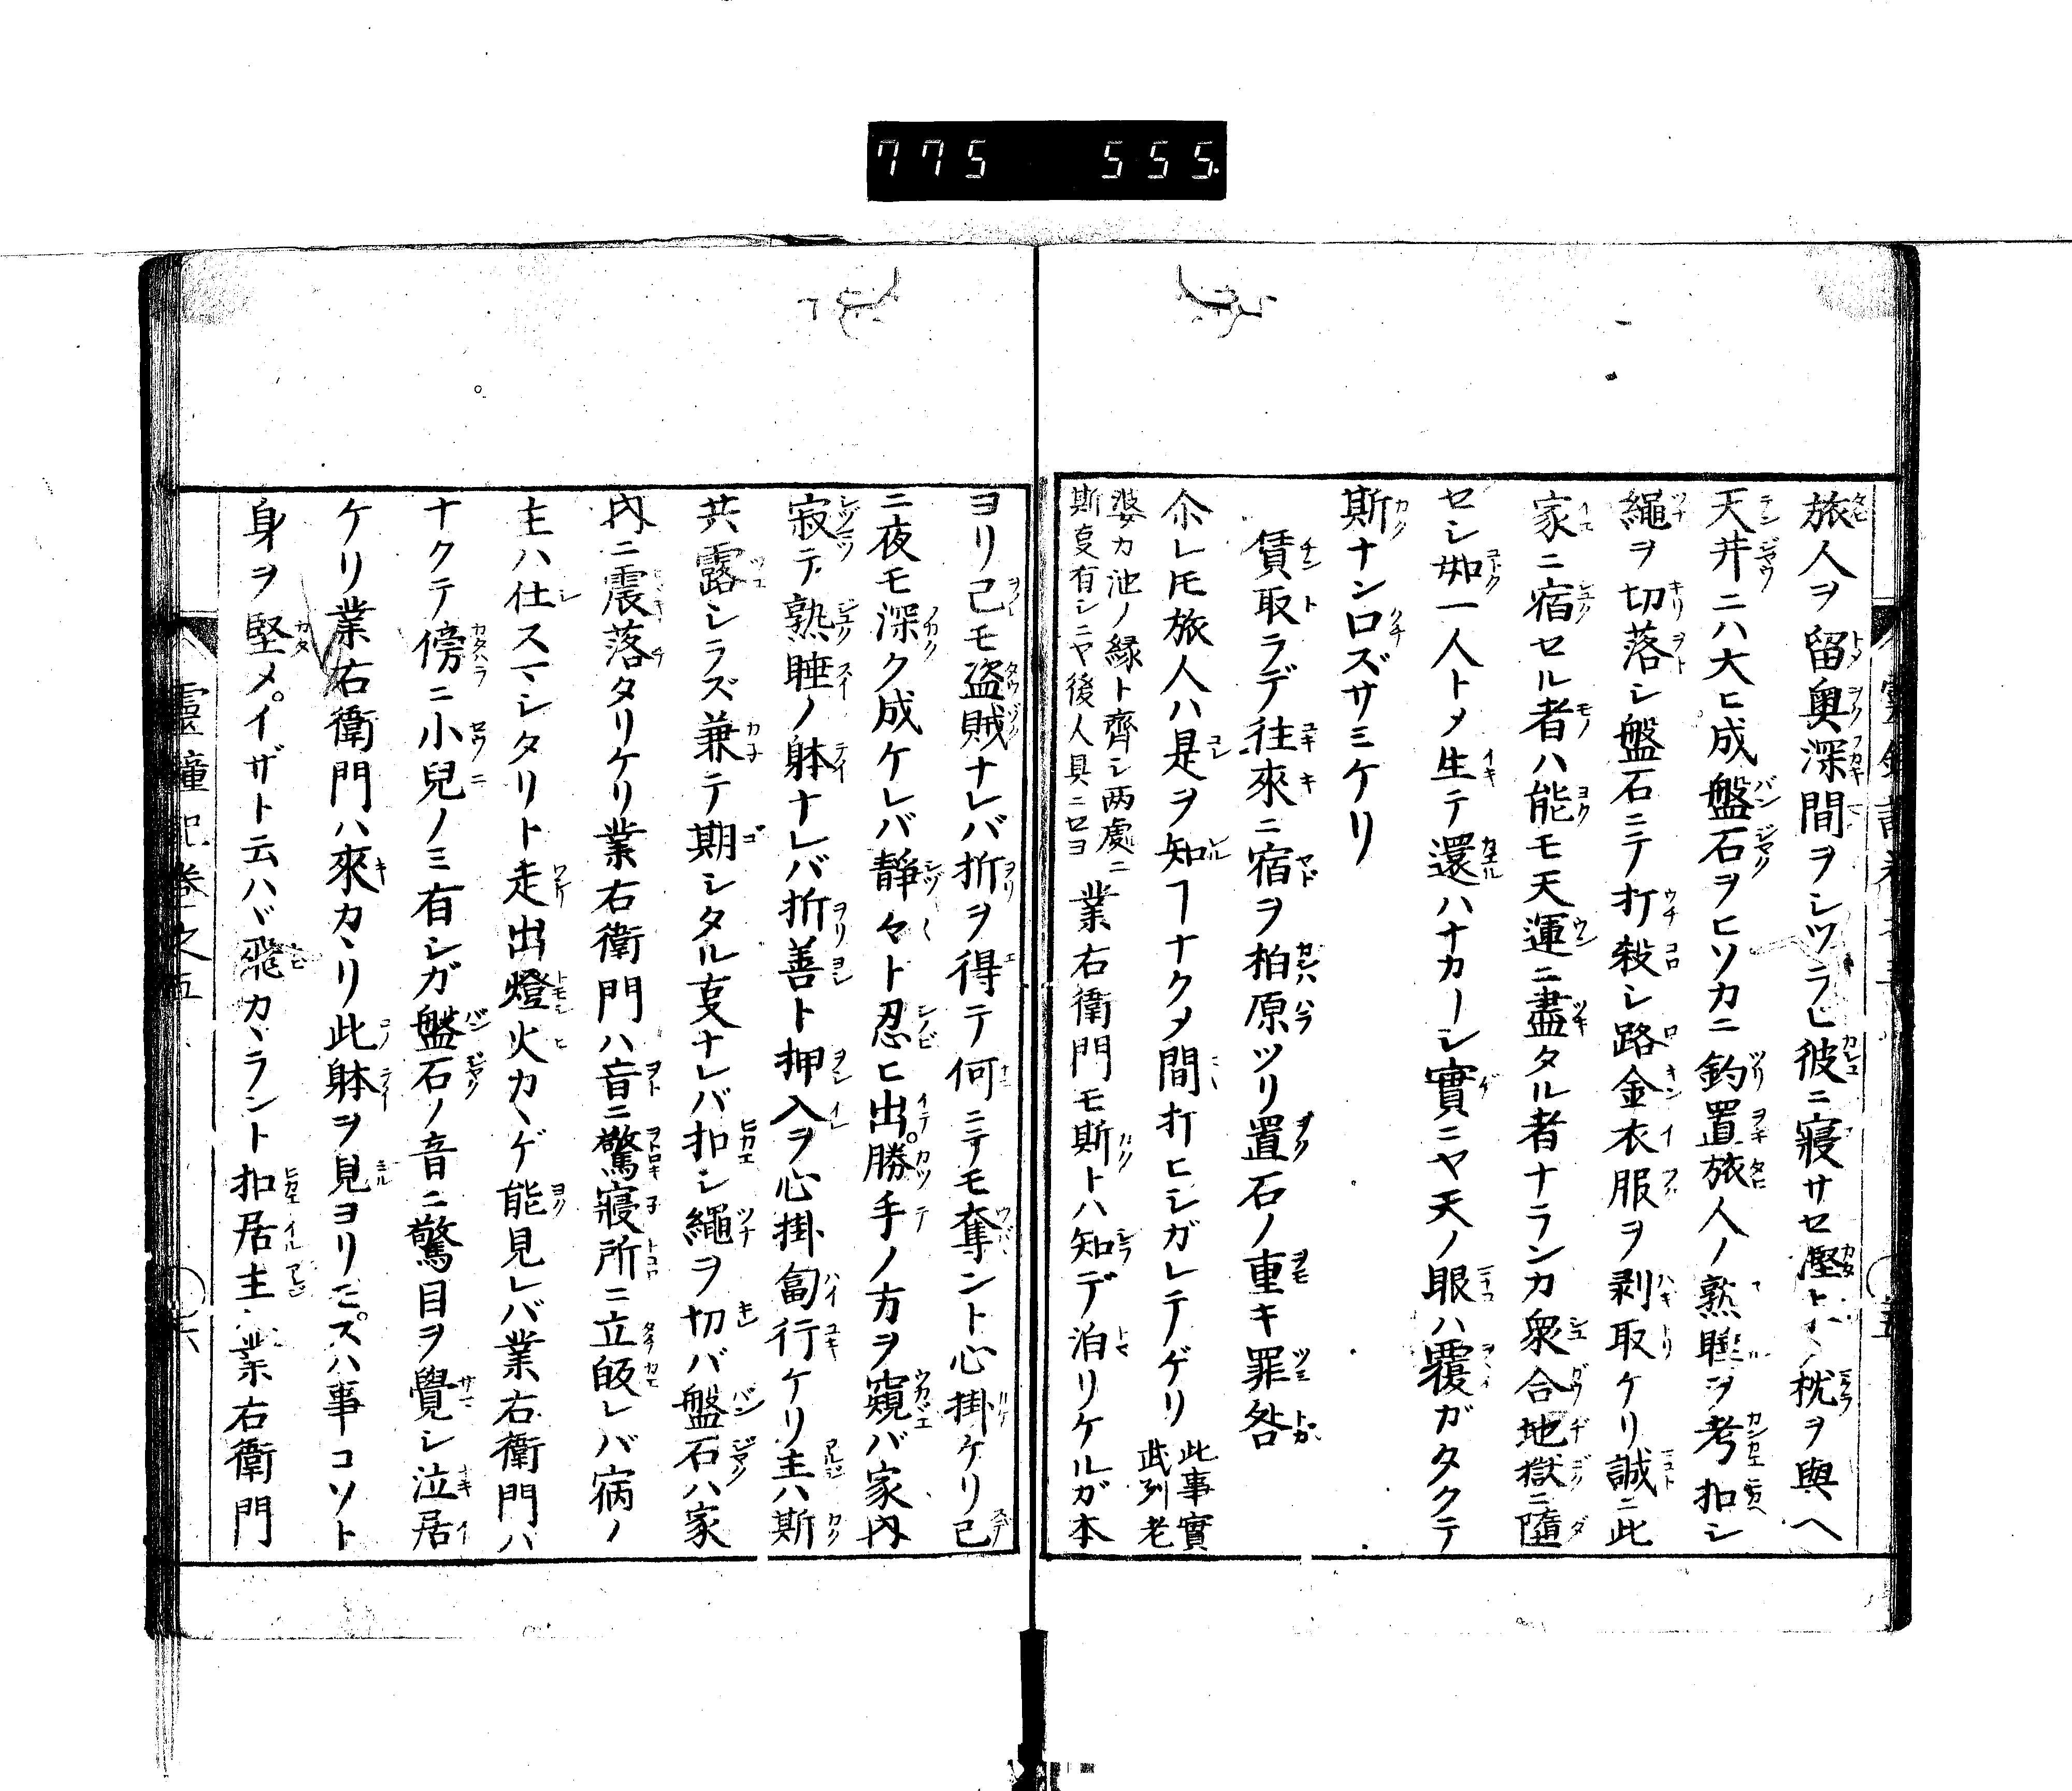 775 555.
旅人ヲ留奥深間ヲシツラヒ彼ニ寝サセ堅ト枕ヲ與ヘ
天井ニハ大ヒ成盤石ヲヒソカニ釣置旅人ノ熟睡ヲ考扣シ
繩ヲ切落シ盤石ニテ打殺シ路金衣服ヲ剥取ケリ誠ニ此
家ニ宿セル者ハ能モ天運ニ盡タル者ナランカ衆合地獄ニ墮
セシ如一人トメ生テ還ハナカーシ實ニヤ天ノ眼ハ覆ガタクテ
斯ナン口ズサミケリ
賃取ラデ往來ニ宿ヲ柏原ツリ置石ノ重キ罪咎
尒レ𪜈旅人ハ是ヲ知ヿナクメ間打ヒシガレテゲリ此事實武列老
婆カ池ノ縁ト齊シ两處ニ斯㕝有シニヤ後人具ニセヨ業右衛門モ斯トハ知デ泊リケルガ本
ヨリ己モ盗賊ナレバ折ヲ得テ何ニテモ奪ント心掛ケリ已
ニ夜モ深ク成ケレバ静々ト忍ヒ出勝手ノ方ヲ窺バ家内
寂テ熟睡ノ躰ナレバ折善ト押入ヲ心掛匐行ケリ主ハ斯
共露シラズ兼テ期シタル㕝ナレバ扣シ繩ヲ切バ盤石ハ家
内ニ震落タリケリ業右衛門ハ音ニ驚寢所ニ立皈レバ病ノ
主ハ仕スマシタリト走出燈火カヽゲ能見レバ業右衛門ハ
ナクテ傍ニ小兒ノミ有シガ盤石ノ音ニ驚目ヲ覺シ泣居
ケリ業右衛門ハ來カヽリ此躰ヲ見ヨリモスハ事コソト
身ヲ堅メイザト云ハヾ飛カヽラント扣居主業右衛門
靈瞳記卷之五
六